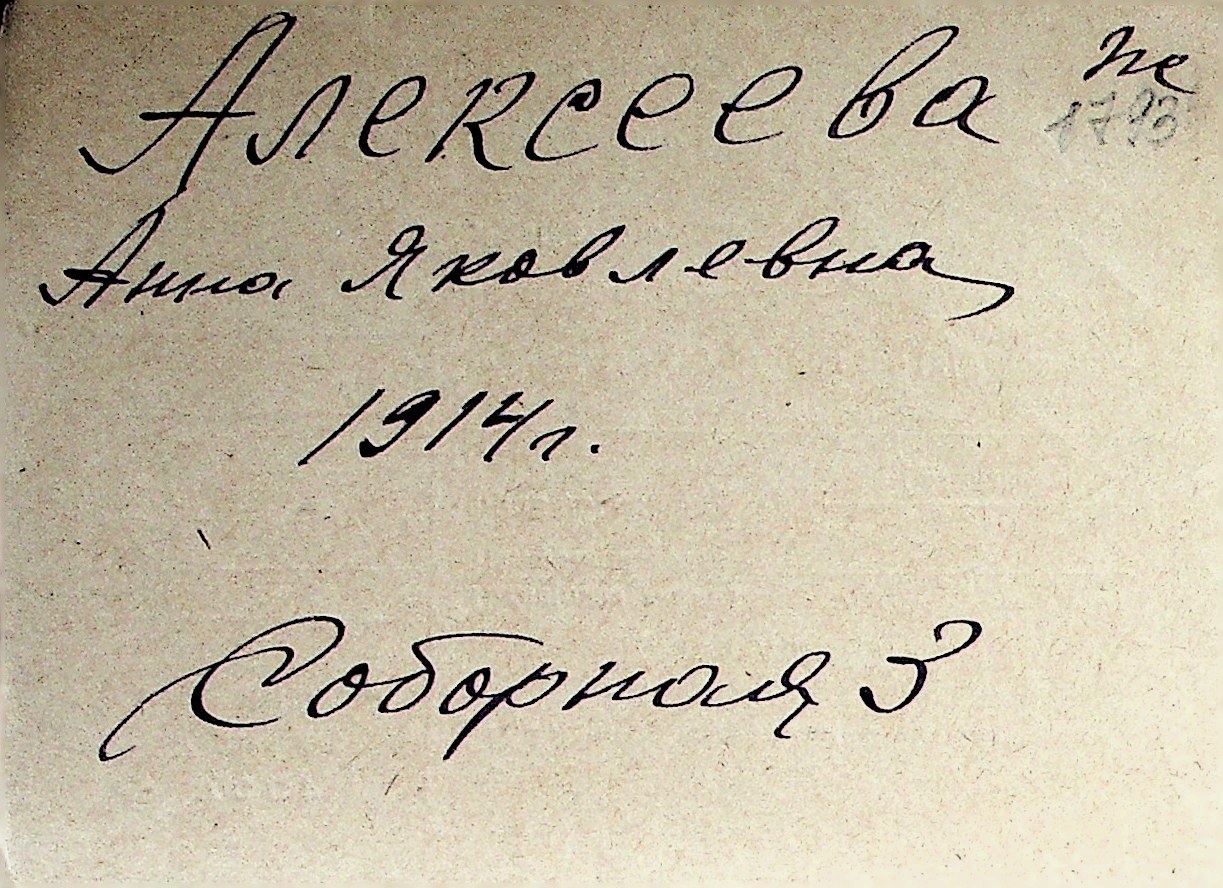 Алексеева
Анна Яковлевна
1914г.
Соборная 3